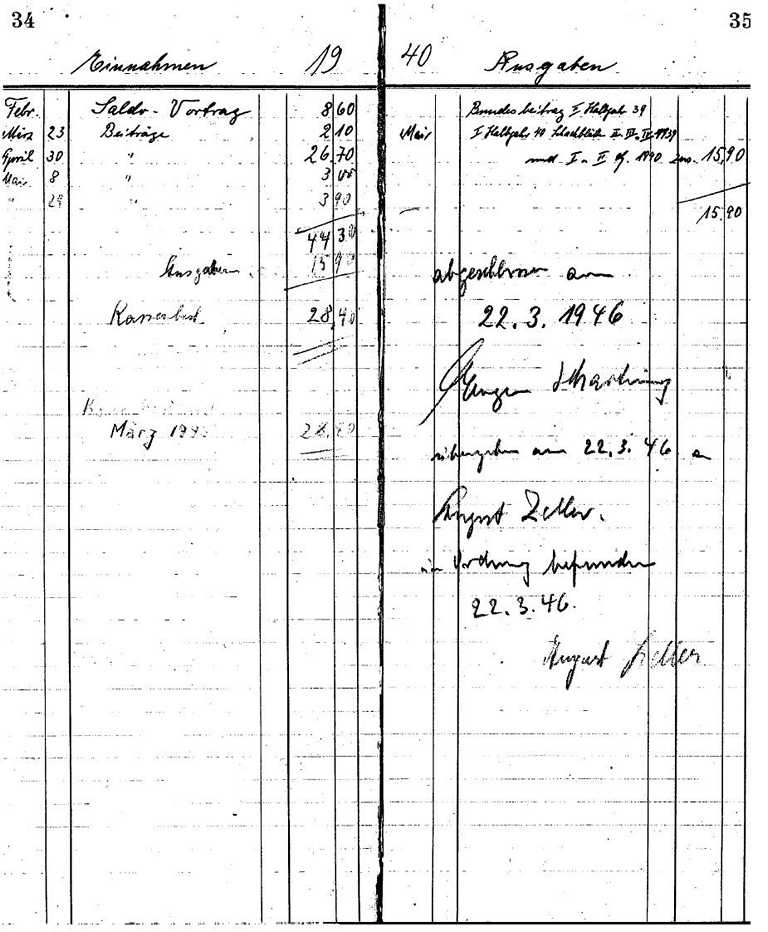 34
Einnahmen 19
Febr. Saldo-Vortrag 8 60
März 23 Beiträge 2 10
April 30 " 26.70
Mai 8 " 3
" 29 " 3 90
44 30
Ausgaben 15 90
28.40
März
40 Ausgaben 35
Bundesbeitrag I Halbjahr 39
Mai I Halbjahr 40 II. III. IV. 1939
und I. u. II 1940 zus. 15,90
15.90
abgeschlossen am
22.3.1946
Eugen
übergeben am 22.3.46 an
August Zeller.
in Ordnung befunden
22.3.46.
August Zeller